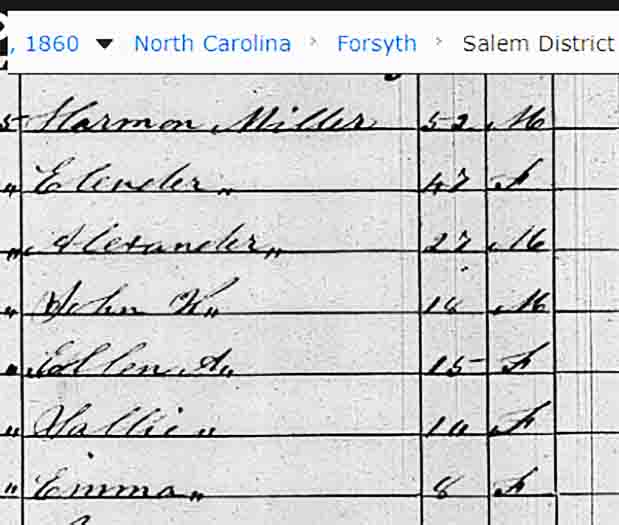 , 1860 ▼ North Carolina > Forsyth > Salem District
5 Harmon Miller 52 M
" Elender " 47 F
" Alexander " 27 M
" John " 18 M
" Ellen A " 15 F
" Sallie " 10 F
" Emma " 8 F